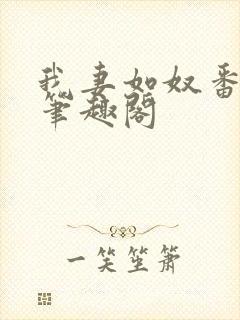 我妻如奴番
笔趣阁
一笑坐萧